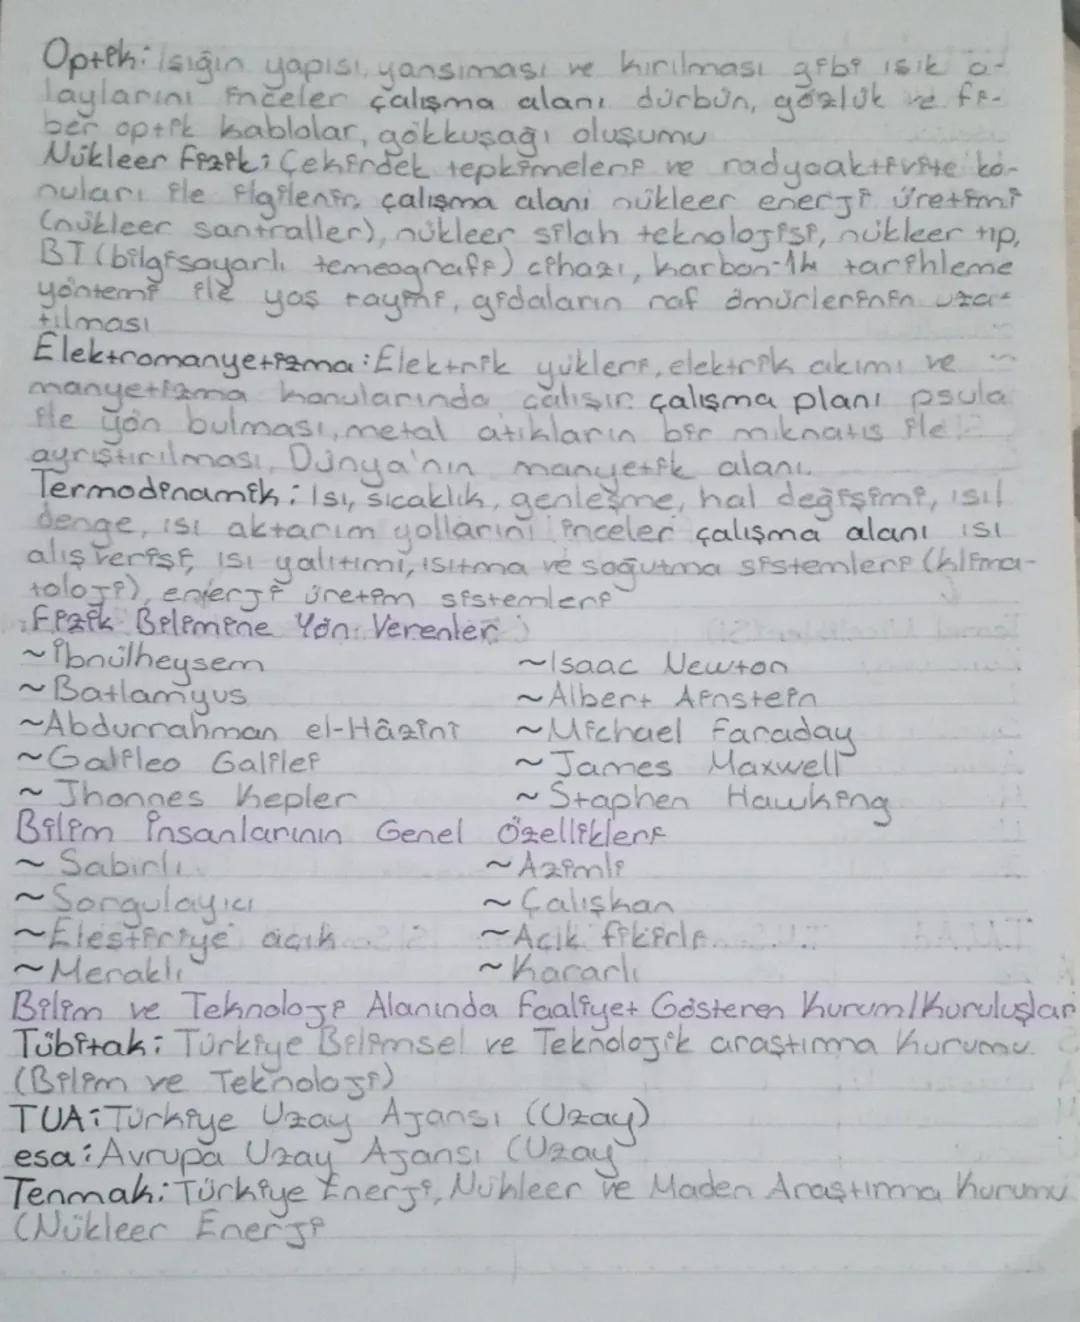 Optik: Işığın yapısı, yansıması ve kırılması gibi ışık o-
laylarını inceler çalışma alanı dürbün, gözlük ve fi-
ber optik kablolar, gökkuşağı oluşumu
Nükleer Fizik: Çekirdek tepkimeleri ve radyoaktivite ko-
nuları ile ilgilenir, çalışma alanı nükleer enerji üretimi
(nükleer santraller), nükleer silah teknolojisi, nükleer tıp,
BT (bilgisayarlı temeografi) cihazı, karbon-14 tarihleme
yöntemi ile yaş tayini, gıdaların raf ömürlerinin uza-
tılması
Elektromanyetizma: Elektrik yükleri, elektrik akımı ve
manyetizma konularında çalışır çalışma planı psula
ile yön bulması, metal atıkların bir mıknatıs ile
ayrıştırılması, Dünya'nın manyetik alanı.
Termodinamik: Isı, sıcaklık, genleşme, hal değişimi, ısıl
denge, ısı aktarım yollarını inceler çalışma alanı ısı
alışverişi, ısı yalıtımı, ısıtma ve soğutma sistemleri (klima-
toloji), enerji üretim sistemleri
Fizik Bilimine Yön Verenler
~İbnülheysem ~Isaac Newton
~Batlamyus ~Albert Ainstein
~Abdurrahman el-Hâzinî ~Michael Faraday
~Galileo Galilei ~James Maxwell
~Jhonnes Kepler ~Staphen Hawking
Bilim İnsanlarının Genel Özellikleri
~Sabırlı ~Azimli
~Sorgulayıcı ~Çalışkan
~Eleştiriye açık ~Açık fikirli
~Meraklı ~Kararlı
Bilim ve Teknoloji Alanında Faaliyet Gösteren Kurum/Kuruluşlar
Tübitak: Türkiye Bilimsel ve Teknolojik araştırma Kurumu.
(Bilim ve Teknoloji)
TUA: Türkiye Uzay Ajansı (Uzay)
esa: Avrupa Uzay Ajansı (Uzay
Tenmak: Türkiye Enerji, Nükleer ve Maden Araştırma Kurumu
(Nükleer Enerji